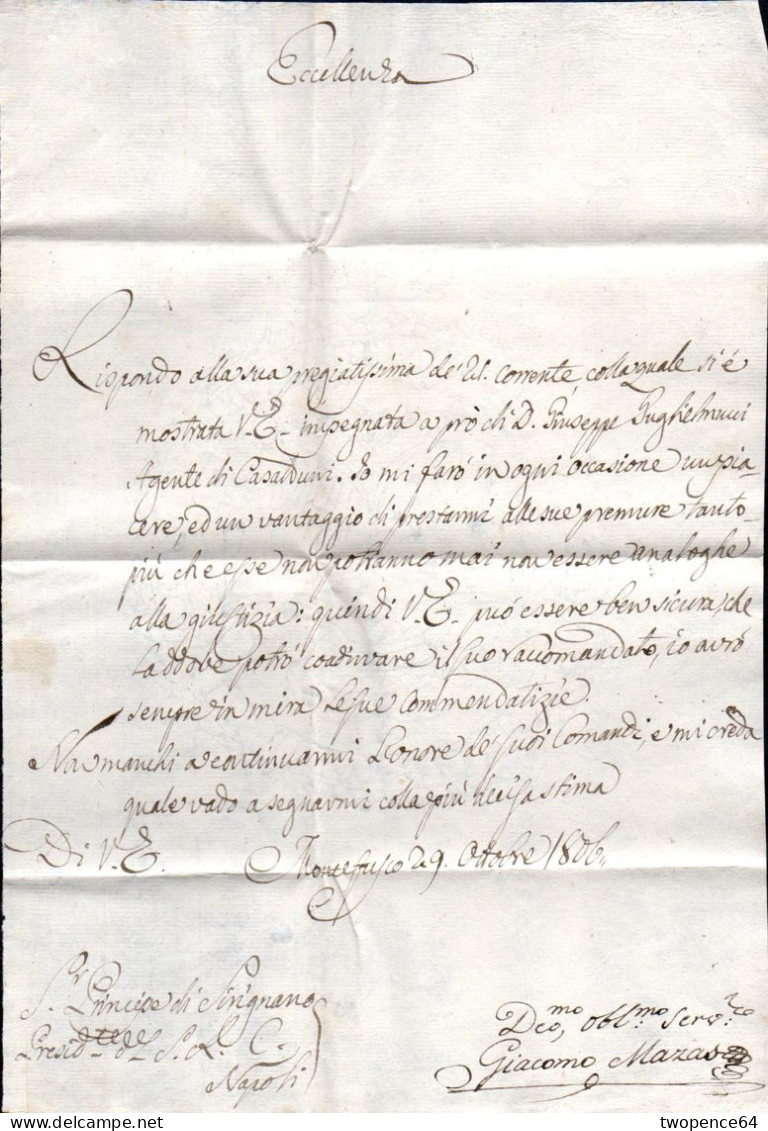 Eccellenza
Rispondo alla sua pregiatissima de' 21. corrente colla quale si é
mostrata V. E. impegnata a prò di D. Giuseppe Guglielmucci
Agente di Casalduni. Io mi faró in ogni occasione un pia-
cere, ed un vantaggio di prestarmi alle sue premure tanto-
più che esse non potranno mai non essere analoghe
alla giustizia: quindi V. E. può essere ben sicura, che
laddove potrò coadiuvare il suo raccomandato, io avrò
sempre in mira le sue commendatizie.
Non manchi a continuarmi l'onore de' suoi Comandi, e mi creda
quale vado a segnarmi colla più decisa stima
Di V. E. Montefusco 29. Ottobre 1806.
S.r Principe di Sirignano
Presid.te del S. R. C.
Napoli
Dev.mo, Obl.mo Serv.re
Giacomo
twopence64